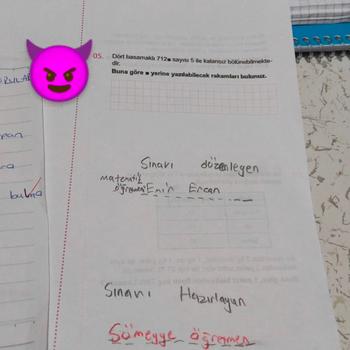 05. Dört basamaklı 712■ sayısı 5 ile kalansız bölünebilmekte-
dir.
Buna göre ■ yerine yazılabilecek rakamları bulunuz.
Sınavı düzenleyen
matematik
öğretmeni Emir Ercan
bulma
Sınavı Hazırlayan
Sümeyye öğretmen